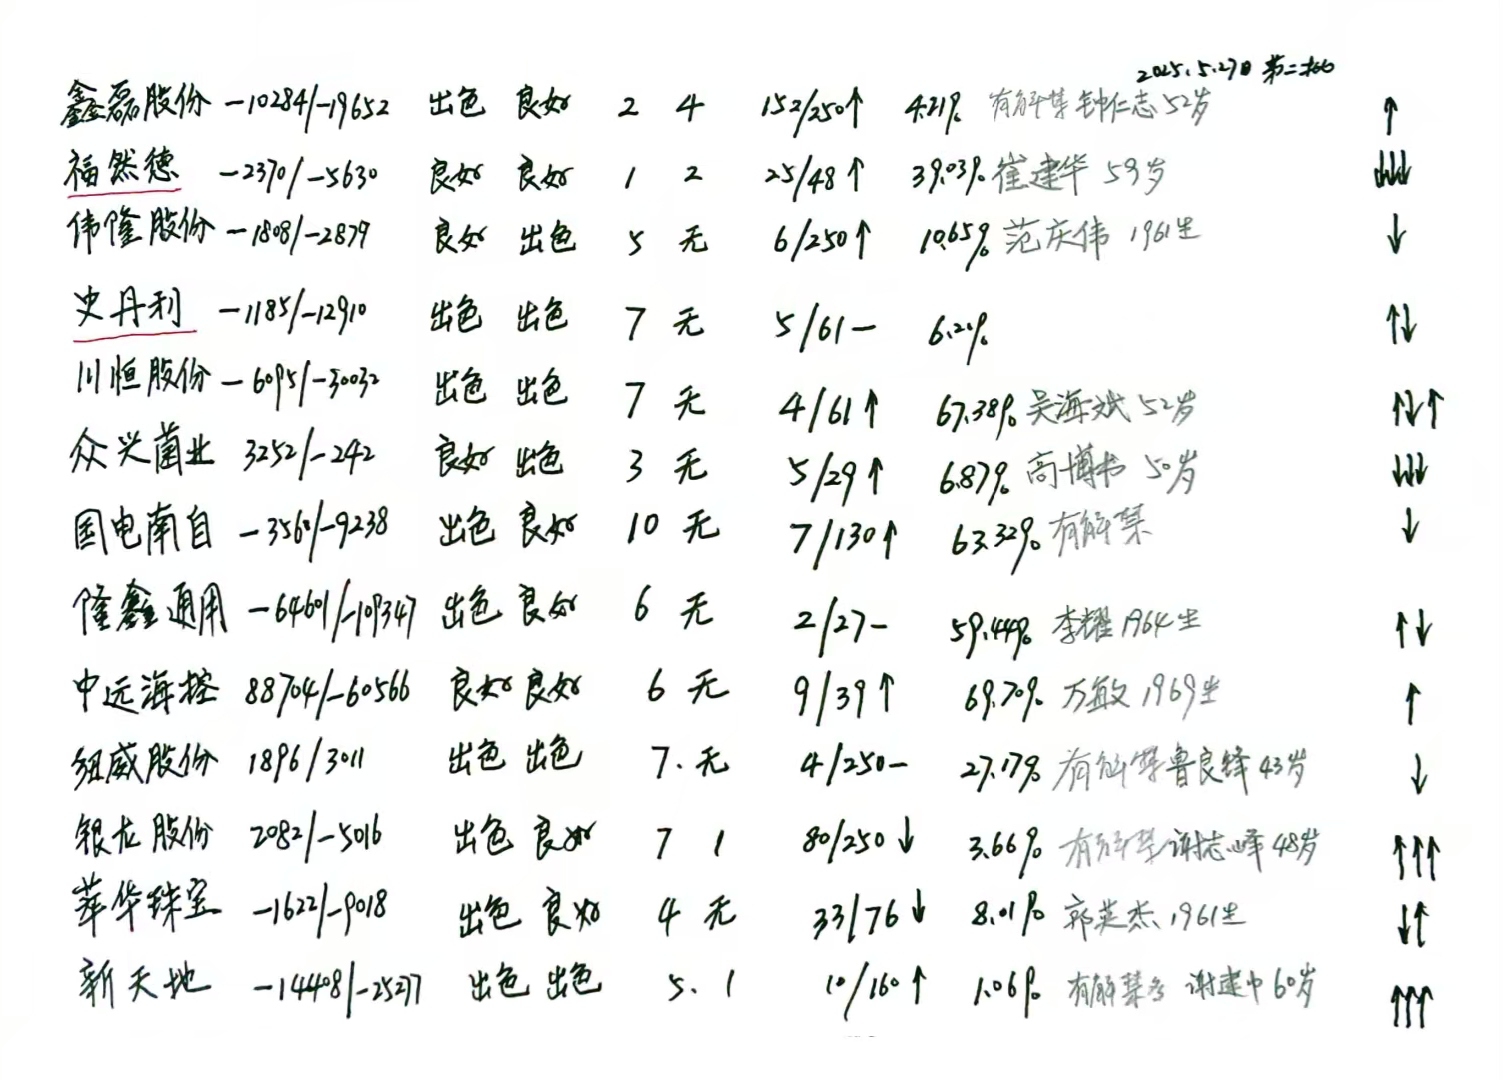 2025.5.27日 第二批
鑫磊股份 -10284/-19652 出色 良好 2 4 152/250↑ 4.21% 有解禁 钟仁志 52岁 ↑
福然德 -2370/-5630 良好 良好 1 2 25/48↑ 39.03% 崔建华 59岁 ↓↓↓
伟隆股份 -1808/-2879 良好 出色 5 无 6/250↑ 10.65% 范庆伟 1961生 ↓
史丹利 -1185/-12910 出色 出色 7 无 5/61- 6.21% ↑↓
川恒股份 -6095/-30032 出色 出色 7 无 4/61↑ 67.38% 吴海斌 52岁 ↑↓↑
众兴菌业 3252/-242 良好 出色 3 无 5/29↑ 6.87% 高博书 50岁 ↓↓↓
国电南自 -3560/-9238 出色 良好 10 无 7/130↑ 63.32% 有解禁 ↓
隆鑫通用 -64601/-109347 出色 良好 6 无 2/27- 59.44% 李耀 1964生 ↑↓
中远海控 88704/-60566 良好 良好 6 无 9/39↑ 69.70% 万敏 1969生 ↑
纽威股份 1896/3011 出色 出色 7. 无 4/250- 27.17% 有解禁 鲁良锋 43岁 ↓
银龙股份 2082/-5016 出色 良好 7 1 80/250↓ 3.66% 有解禁 谢志峰 48岁 ↑↑↑
萃华珠宝 -1622/-9018 出色 良好 4 无 33/76↓ 8.01% 郭英杰 1961生 ↓↑
新天地 -14408/-25277 出色 出色 5. 1 10/160↑ 1.06% 有解禁多 谢建中 60岁 ↑↑↑